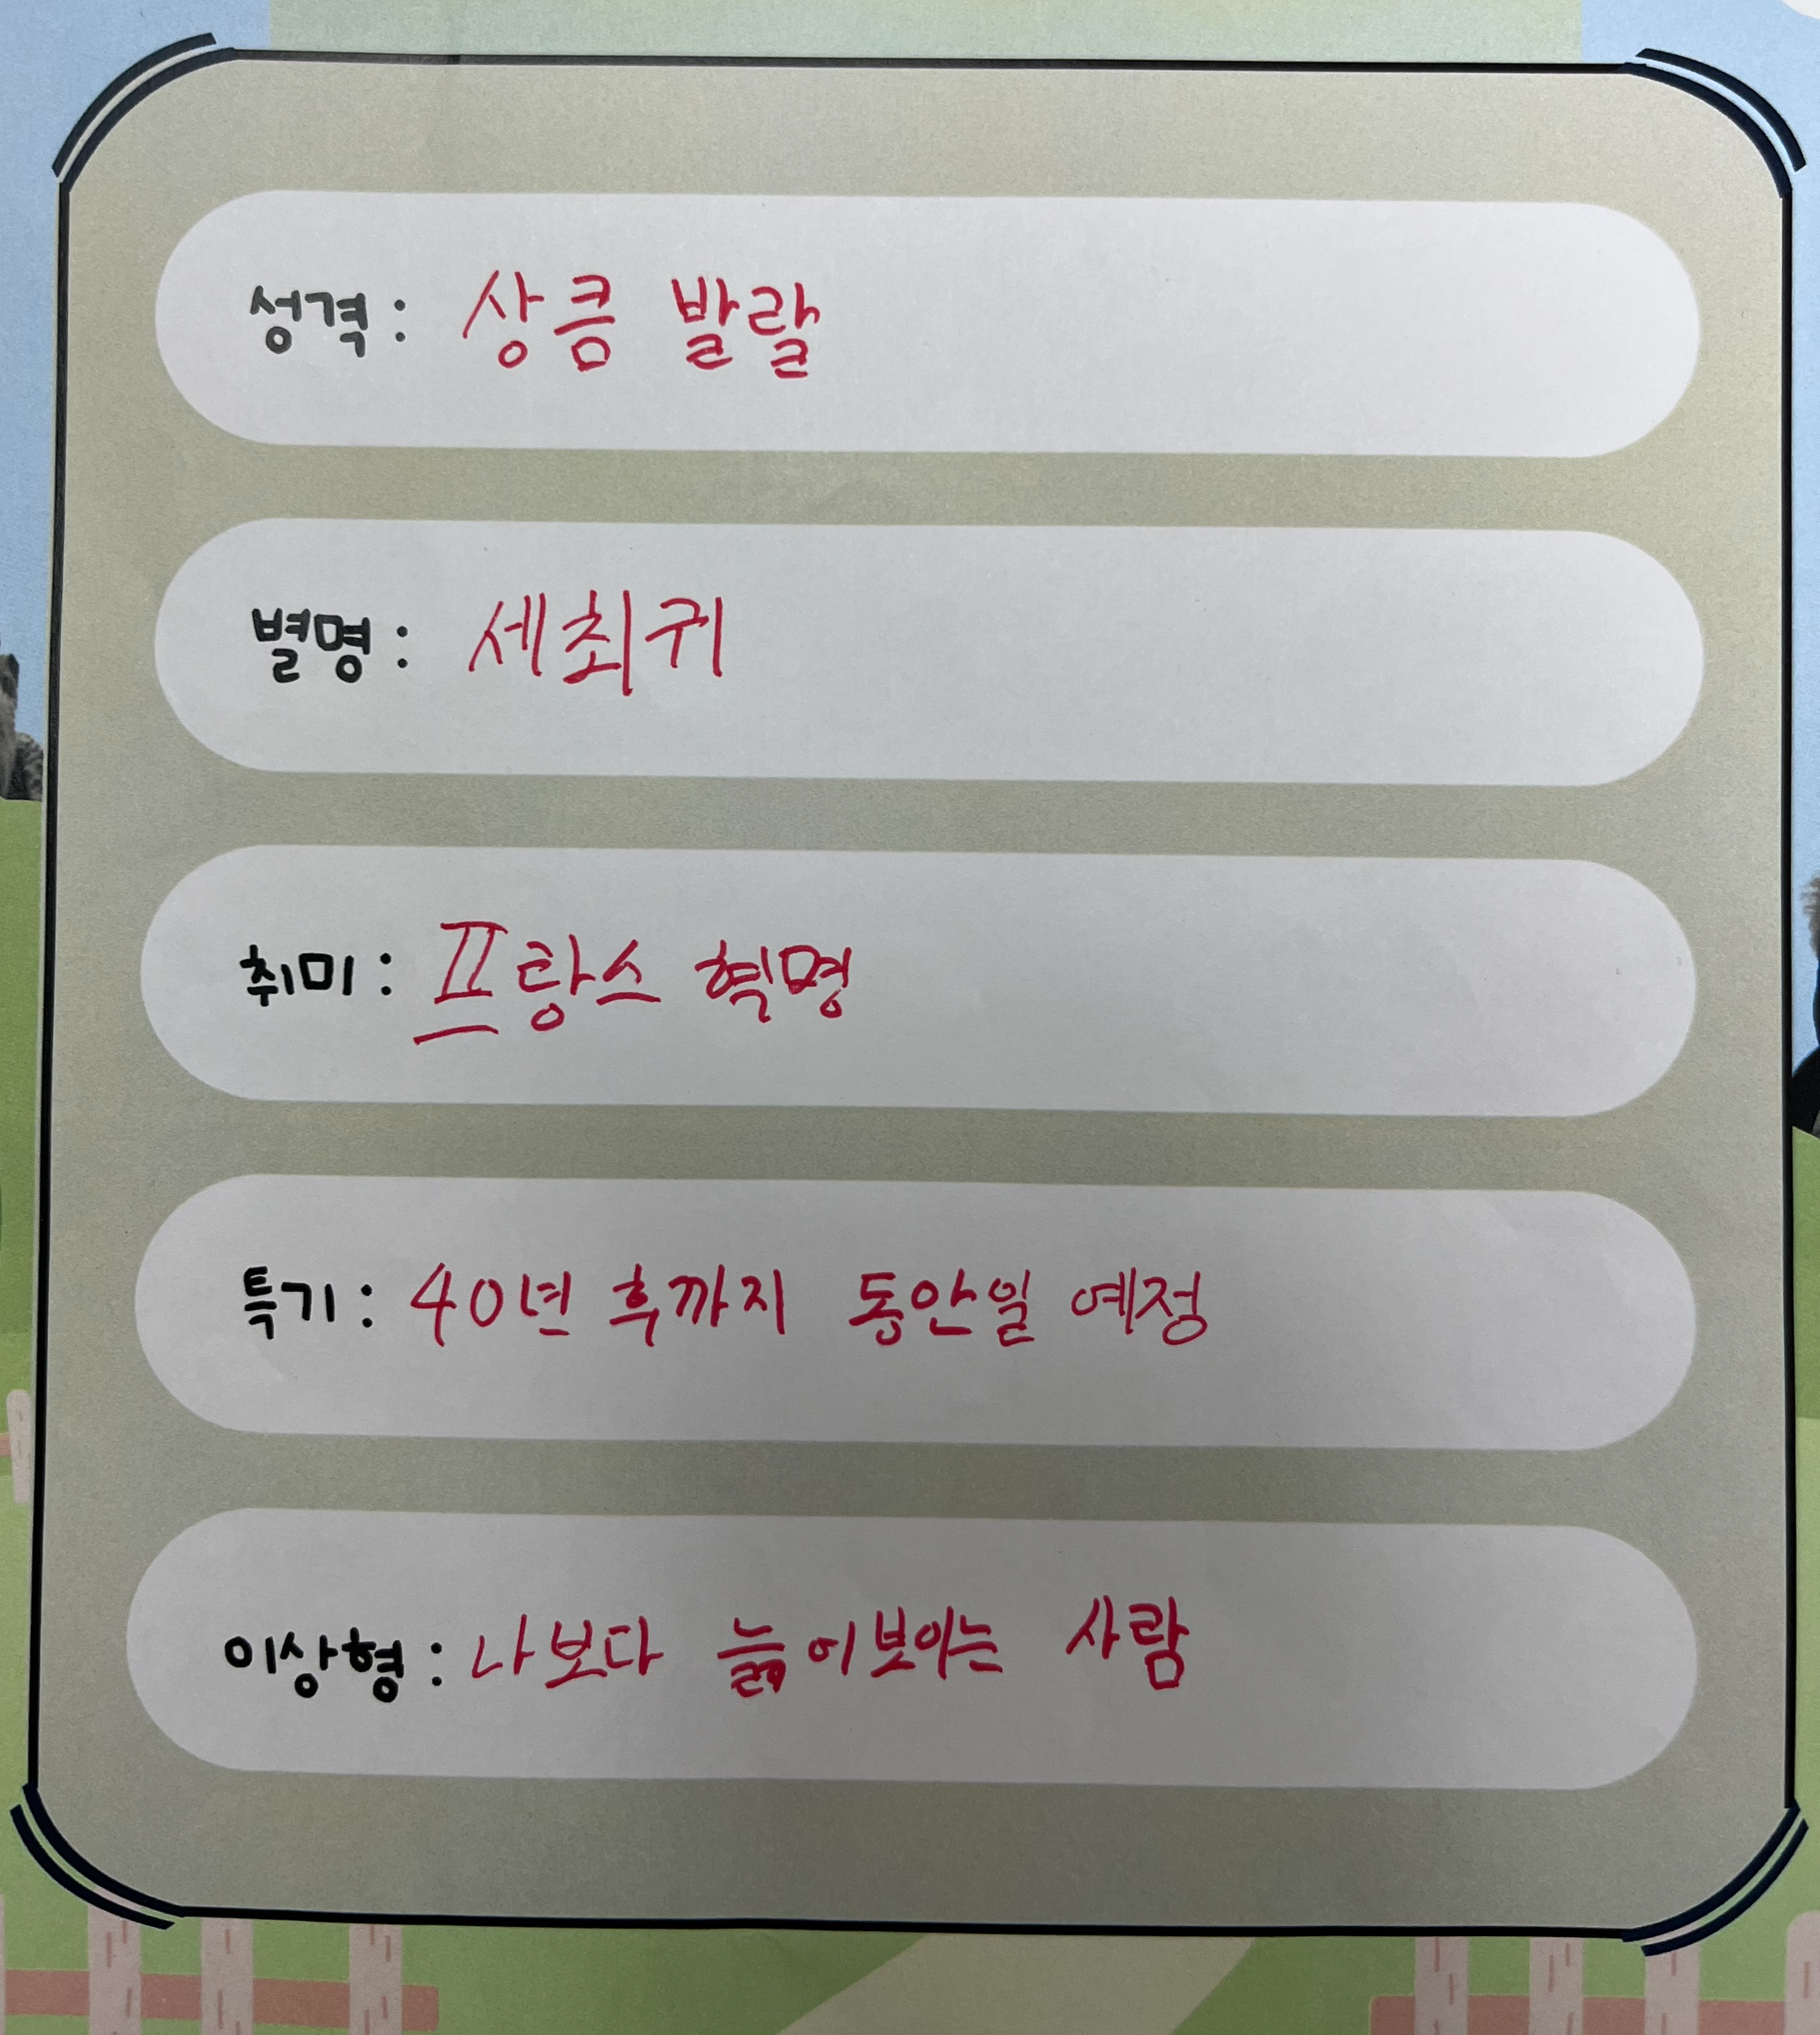 성격: 상큼 발랄
별명: 세최귀
취미: 프랑스 혁명
특기: 40년 후까지 동안일 예정
이상형: 나보다 늙어보이는 사람